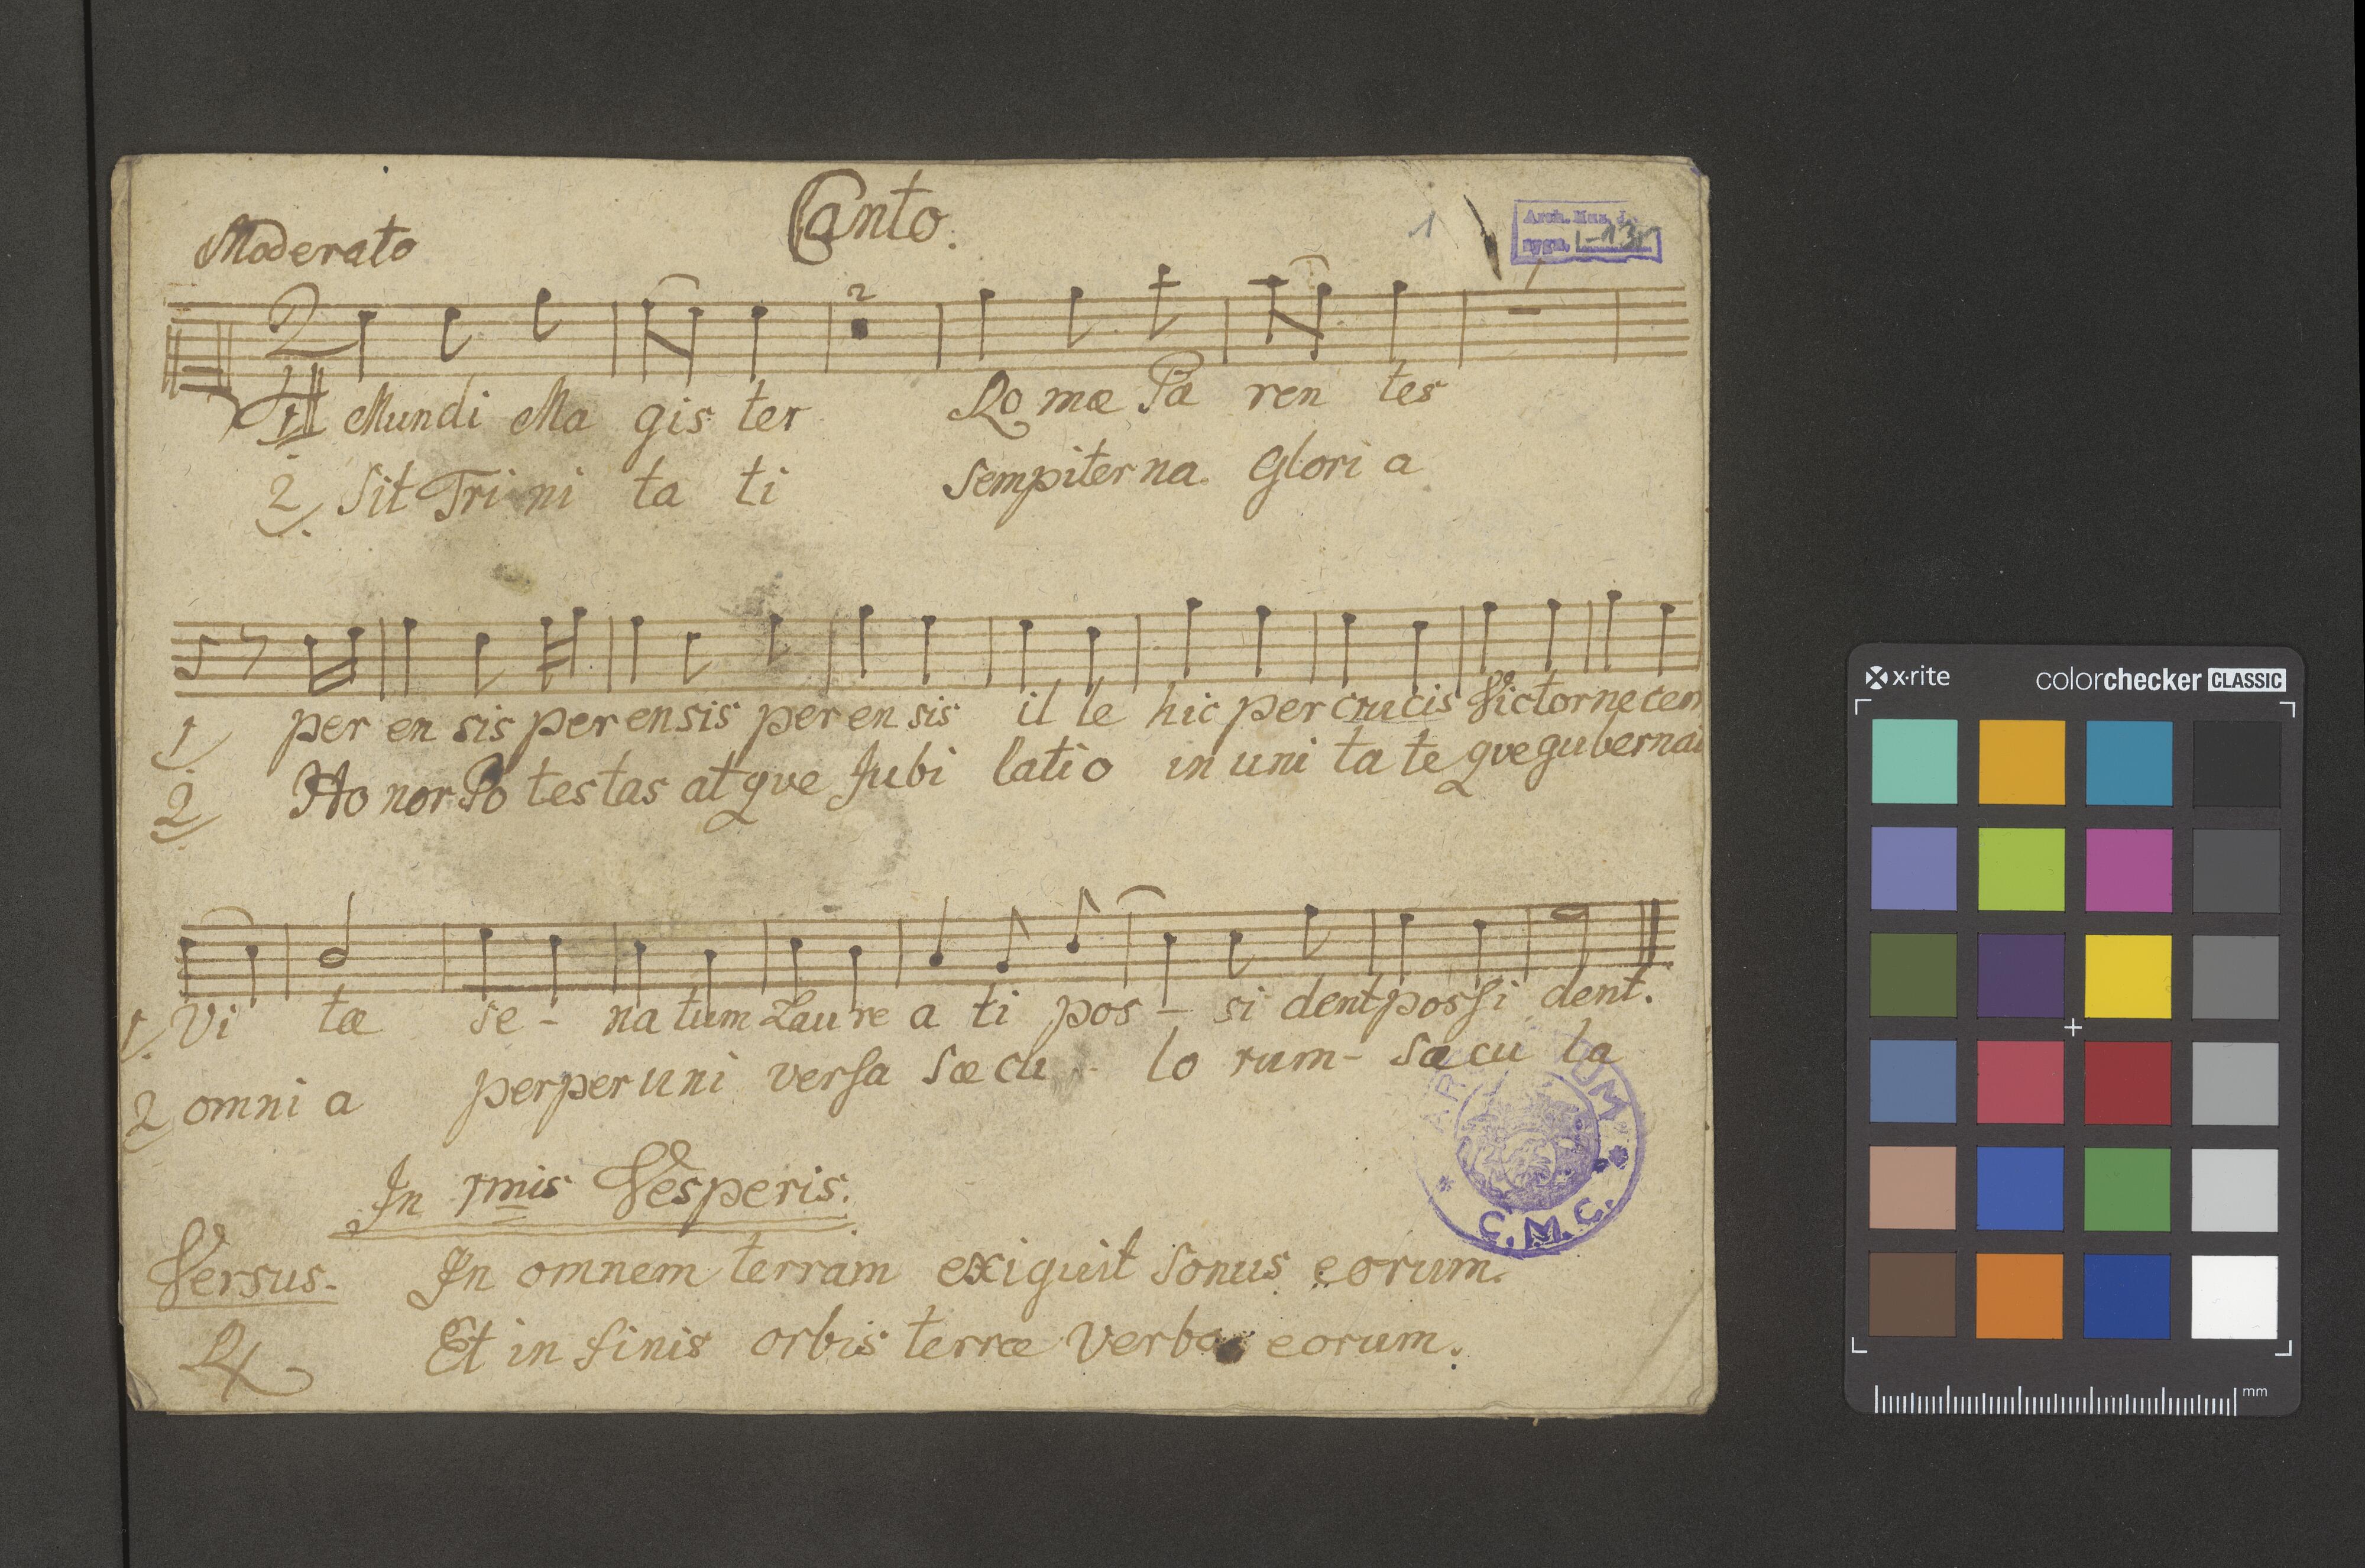 Canto.
Moderato
1
Arch. Mus. J.
sygn. I-13
2
2
1 Mundi Ma gis ter Ro mæ Pa ren tes
2. Sit Tri ni ta ti sempiter na. Glori a
1 per en sis per en sis per en sis il le hic per crucis Victor necem
2 Ho nor Po tes tas at qve Jubi lati o in uni ta te qve gubernat
1. Vi tæ se - na tum Lau re a ti pos - si dent possi dent.
2 omni a per per uni versa sæ cu - lo rum - sæ cu la
In 1mis Vesperis.
Versus. In omnem terram exiguit sonus eorum.
R Et in finis orbis terræ Verba eorum.
C.M.C.
x·rite
colorchecker CLASSIC
mm